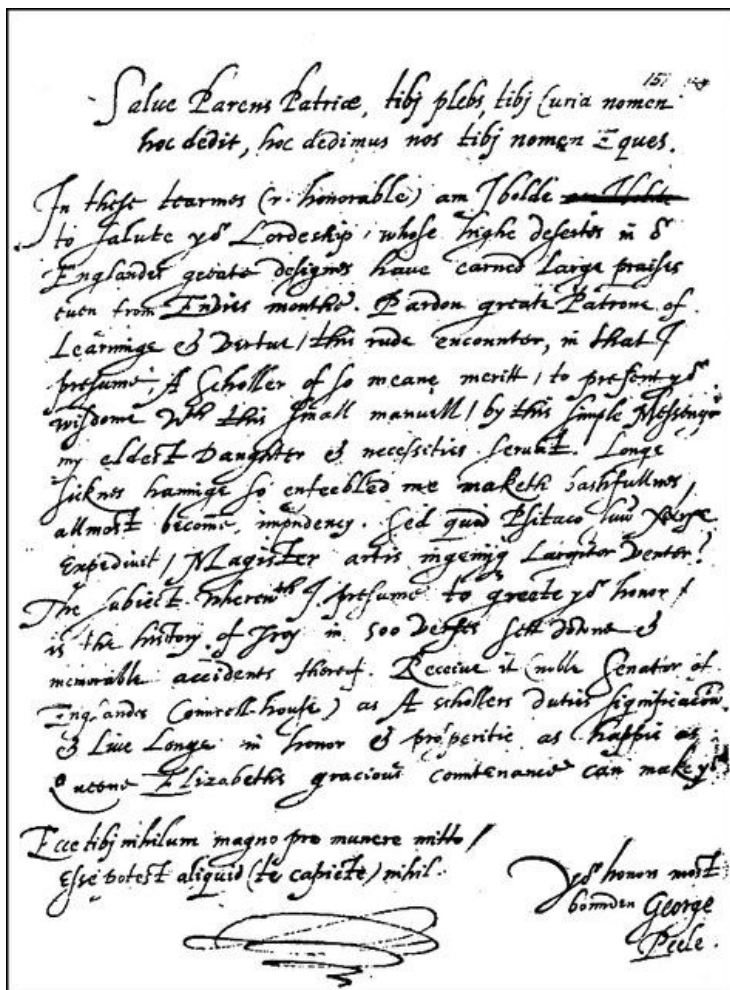 157
Salue Parens Patriæ, tibj plebs, tibj Curia nomen
hoc dedit, hoc dedimus nos tibj nomen Eques.
In these tearmes (r. honorable) am I bolde
to salute yor Lordeship, whose highe desertes in or
Englandes greate designes have earned large praises
euen from Enuies mouthe. Pardon greate Patrone of
Learninge & Vertue / this rude encounter, in that I
presume, A Scholler of so meane meritt / to present yor
wisdome wth this small manuell / by this simple Messenger
my eldest Daughter & necessities seruant. Longe
sicknes hauinge so enfeebled me maketh bashfullnes
allmost become, impudency. Sed quis Psitaco suum χαῖρε
Expediuit / Magister artis ingenijq Largitor Venter?
The subiect wherewth I presume to greete yor honor /
is the history of Troy in 500 verses sett downe &
memorable accidents thereof. Receiue it (noble Senator of
Englandes Councell-house) as A schollers duties significacon
& Liue Longe in honor & prosperitie as happie as
Queene Elizabeths gracious countenance can make yo
Ecce tibj nihilum magno pro munere mitto /
Esse potest aliquid (te capiete) nihil.
yor honors most
bounden George
Peele.